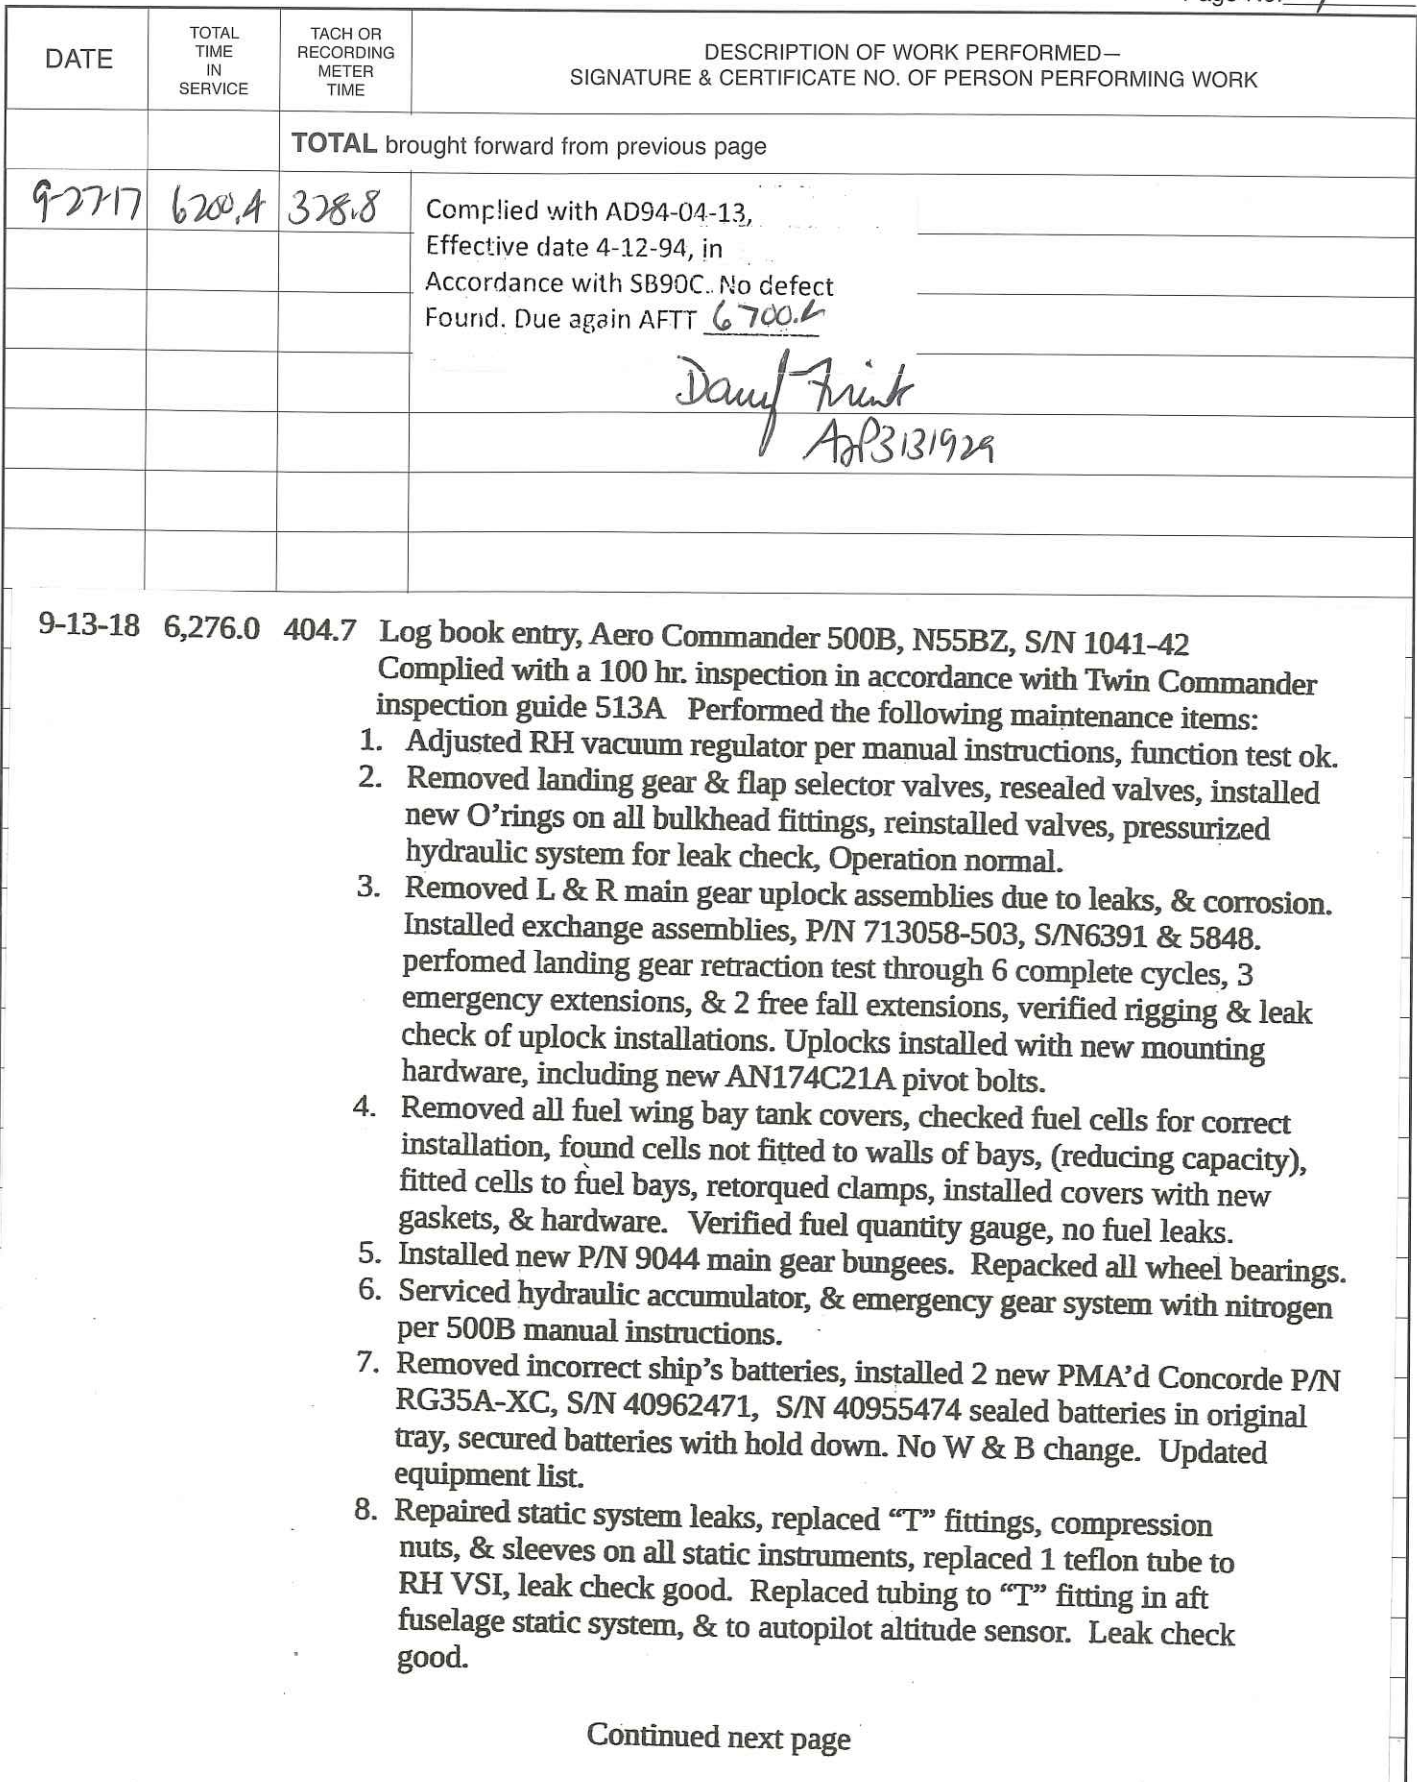 Page No.
DATE
TOTAL TIME IN SERVICE
TACH OR RECORDING METER TIME
DESCRIPTION OF WORK PERFORMED—
SIGNATURE & CERTIFICATE NO. OF PERSON PERFORMING WORK
TOTAL brought forward from previous page
9-27-17 6200.4 328.8 Complied with AD94-04-13,
Effective date 4-12-94, in
Accordance with SB90C. No defect
Found. Due again AFTT 6700.4
A&P3131929
9-13-18 6,276.0 404.7 Log book entry, Aero Commander 500B, N55BZ, S/N 1041-42
Complied with a 100 hr. inspection in accordance with Twin Commander
inspection guide 513A Performed the following maintenance items:
1. Adjusted RH vacuum regulator per manual instructions, function test ok.
2. Removed landing gear & flap selector valves, resealed valves, installed
new O'rings on all bulkhead fittings, reinstalled valves, pressurized
hydraulic system for leak check, Operation normal.
3. Removed L & R main gear uplock assemblies due to leaks, & corrosion.
Installed exchange assemblies, P/N 713058-503, S/N6391 & 5848.
perfomed landing gear retraction test through 6 complete cycles, 3
emergency extensions, & 2 free fall extensions, verified rigging & leak
check of uplock installations. Uplocks installed with new mounting
hardware, including new AN174C21A pivot bolts.
4. Removed all fuel wing bay tank covers, checked fuel cells for correct
installation, found cells not fitted to walls of bays, (reducing capacity),
fitted cells to fuel bays, retorqued clamps, installed covers with new
gaskets, & hardware. Verified fuel quantity gauge, no fuel leaks.
5. Installed new P/N 9044 main gear bungees. Repacked all wheel bearings.
6. Serviced hydraulic accumulator, & emergency gear system with nitrogen
per 500B manual instructions.
7. Removed incorrect ship's batteries, installed 2 new PMA'd Concorde P/N
RG35A-XC, S/N 40962471, S/N 40955474 sealed batteries in original
tray, secured batteries with hold down. No W & B change. Updated
equipment list.
8. Repaired static system leaks, replaced “T” fittings, compression
nuts, & sleeves on all static instruments, replaced 1 teflon tube to
RH VSI, leak check good. Replaced tubing to “T” fitting in aft
fuselage static system, & to autopilot altitude sensor. Leak check
good.
Continued next page